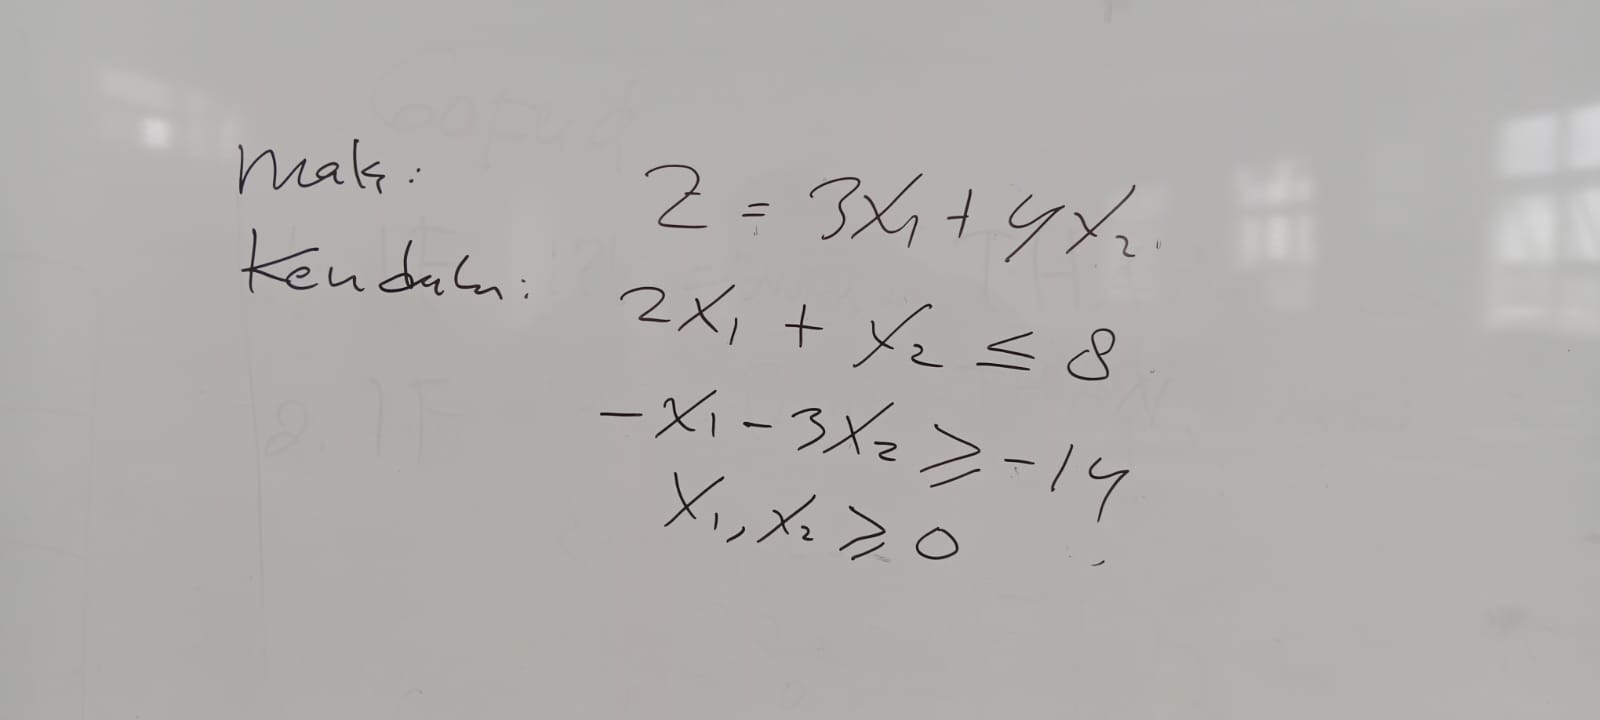 Mak: Z = 3X₁ + 4X₂
Kendala: 2X₁ + X₂ ≤ 8
-X₁ - 3X₂ ≥ -14
X₁, X₂ ≥ 0